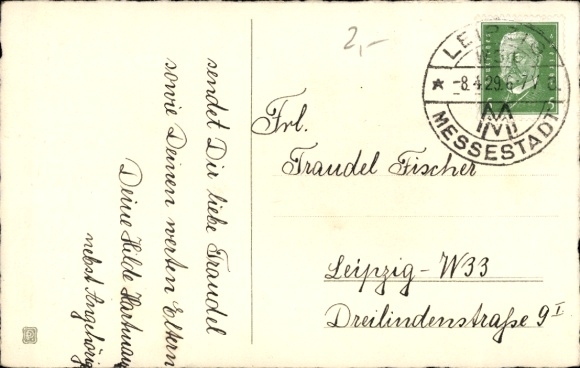 2,-
sendet Dir liebe Traudel
sowie Deinen werten Eltern
Deine Hilde Hartmann
nebst Angehörig
Frl.
Traudel Fischer
Leipzig-W33
Dreilindenstraße 9 I
LEIPZIG
* -8.4.29.6-7
MESSESTADT
M M
5 5